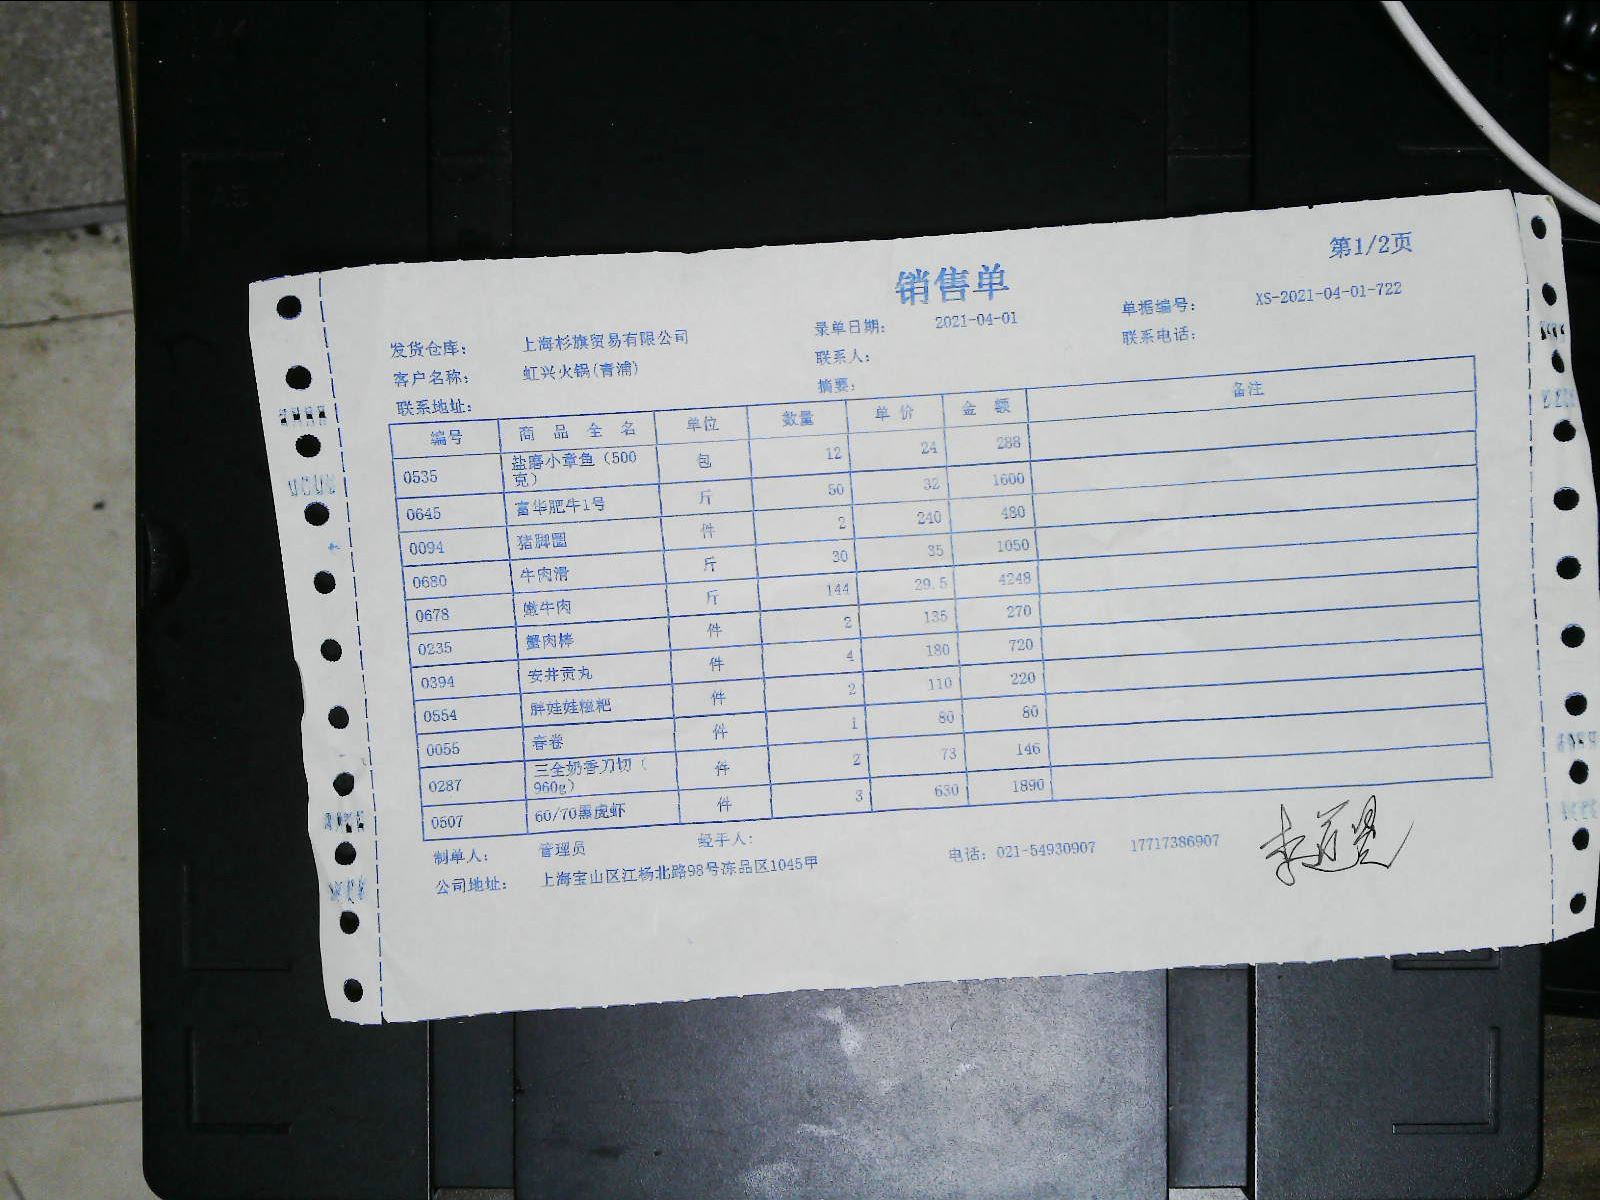 第1/2页
销售单
发货仓库: 上海杉旗贸易有限公司 录单日期: 2021-04-01 单据编号: XS-2021-04-01-722
客户名称: 虹兴火锅(青浦) 联系人: 联系电话:
联系地址: 摘要:
编号 商品全名 单位 数量 单价 金额 备注
0535 盐磨小章鱼(500 包 12 24 288
克)
0645 富华肥牛1号 斤 50 32 1600
0094 猪脚圈 件 2 240 480
0680 牛肉滑 斤 30 35 1050
0678 嫩牛肉 斤 144 29.5 4248
0235 蟹肉棒 件 2 135 270
0394 安井贡丸 件 4 180 720
0554 胖娃娃糍粑 件 2 110 220
0055 春卷 件 1 80 80
0287 三全奶香刀切( 件 2 73 146
960g)
0507 60/70黑虎虾 件 3 630 1890
制单人: 管理员 经手人:
公司地址: 上海宝山区江杨北路98号冻品区1045甲 电话: 021-54930907 17717386907